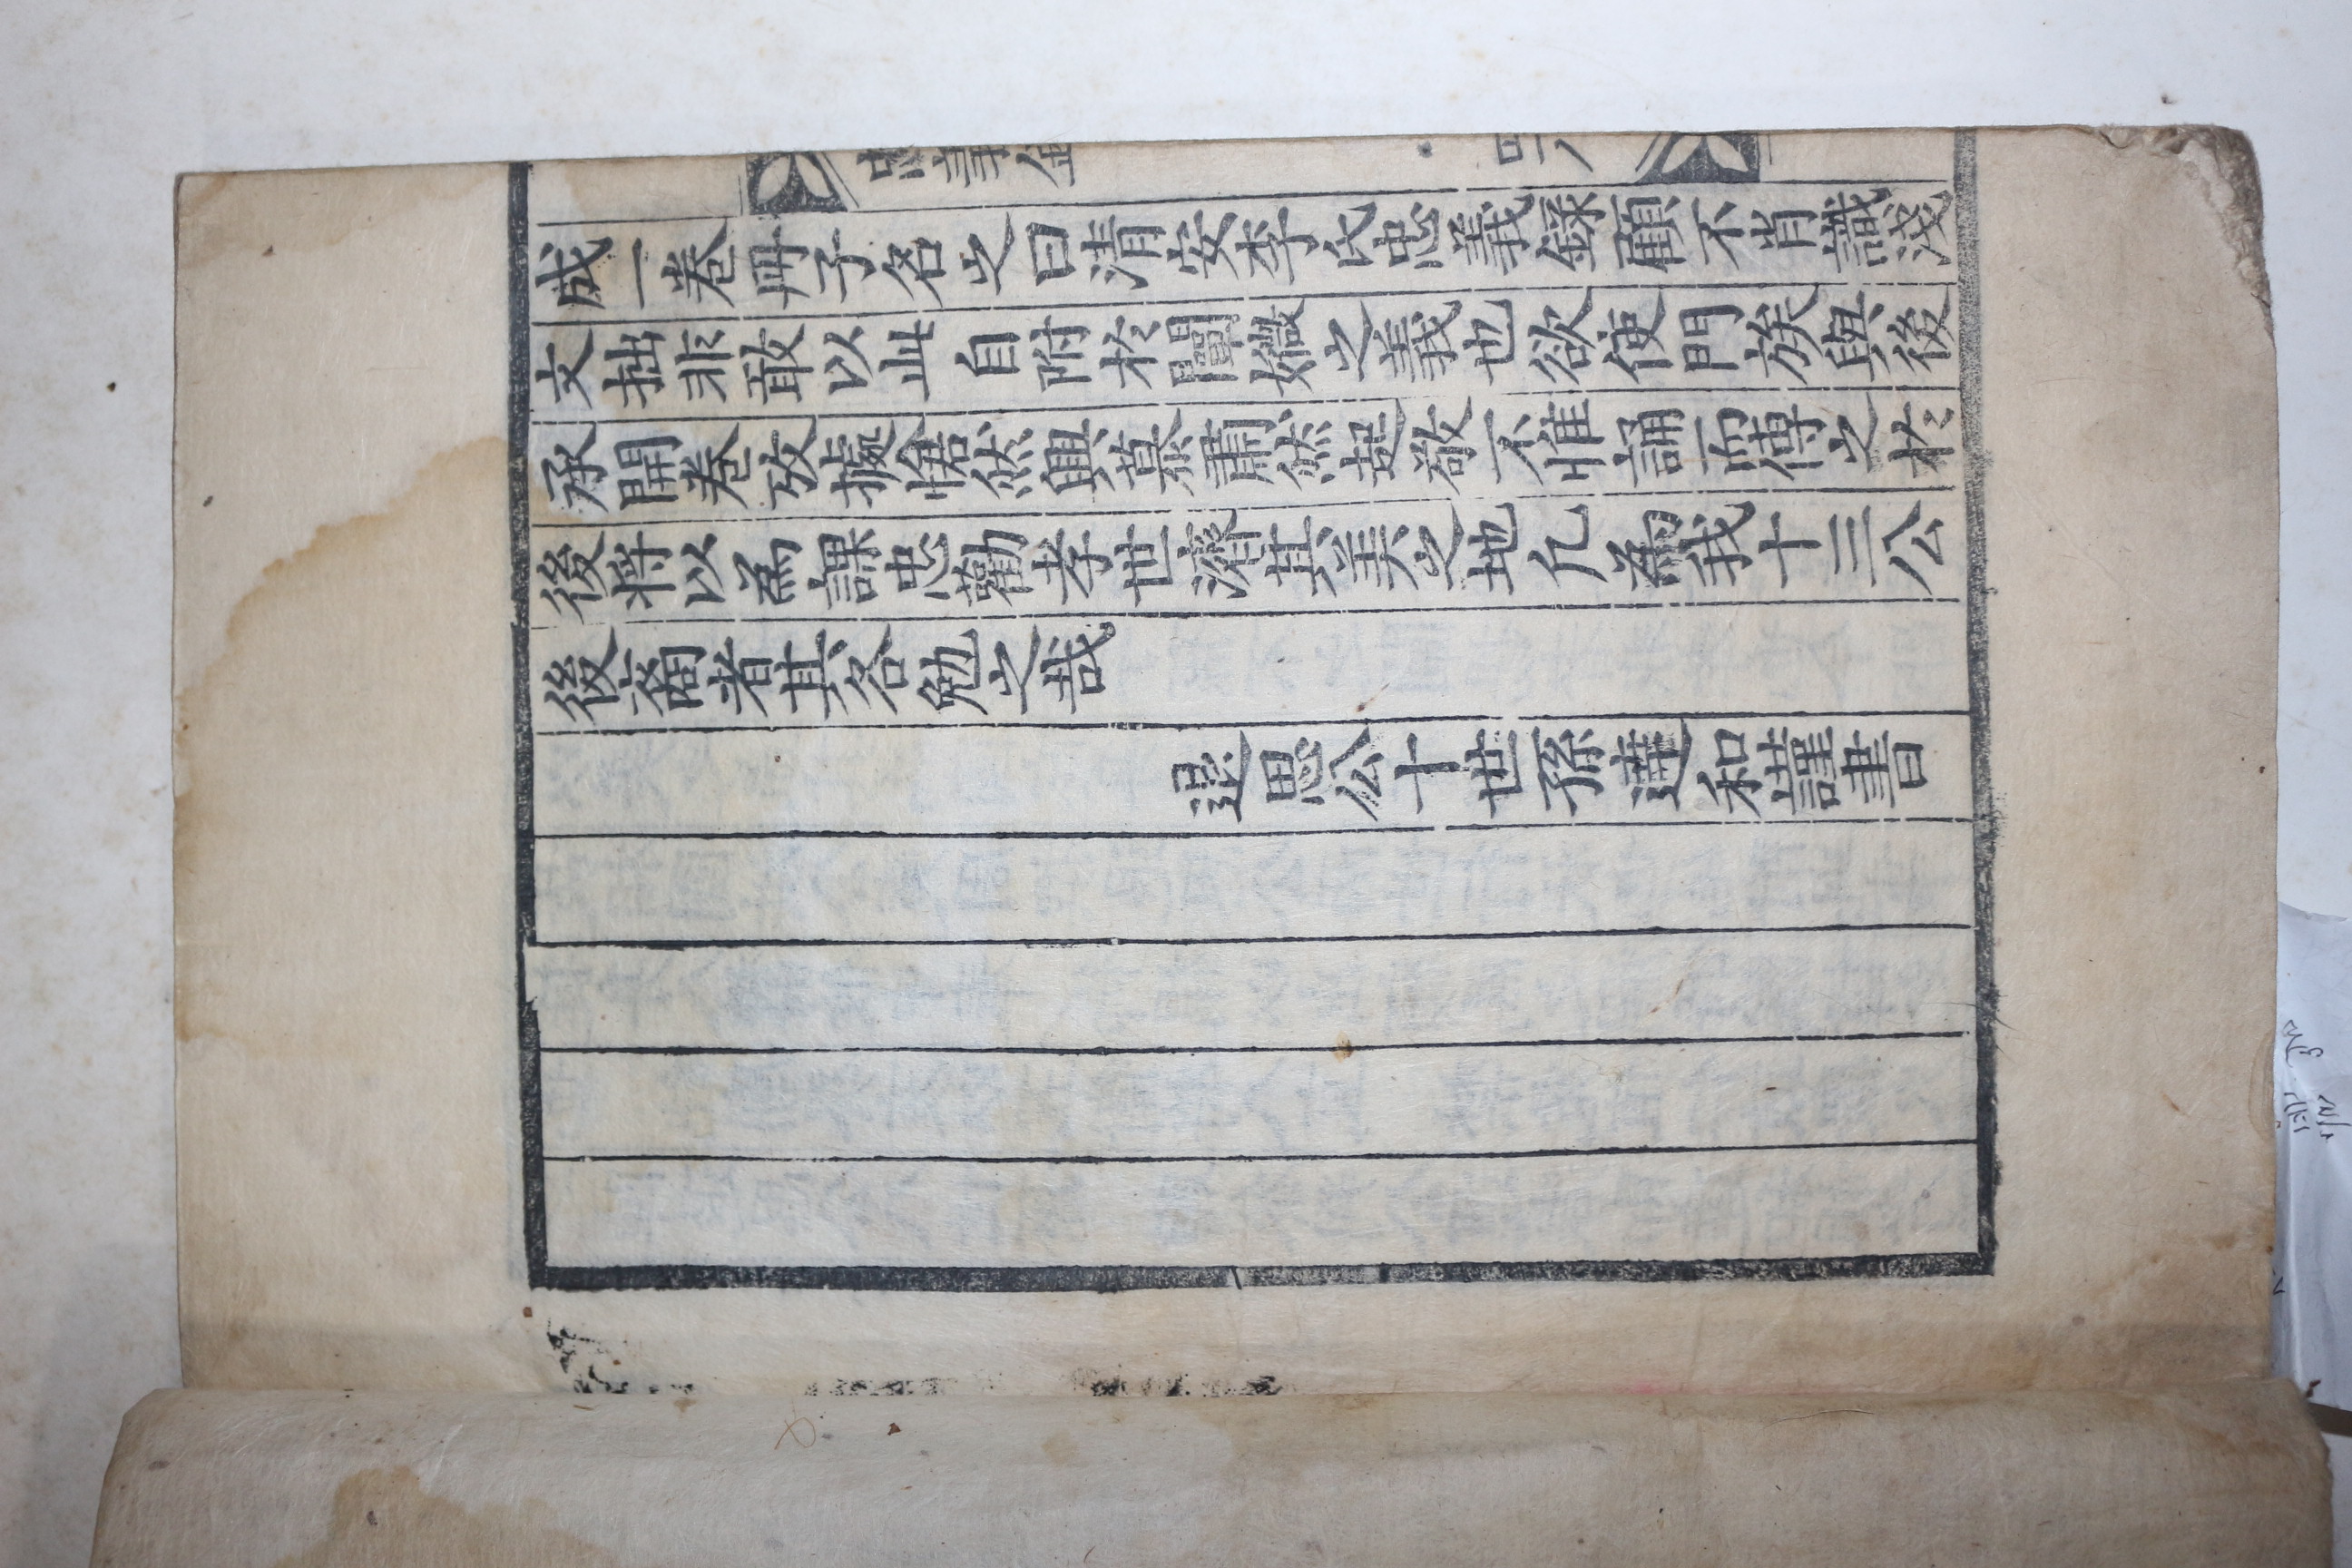 忠義錄
成一卷冊子名之曰清安李氏忠義錄顧不肖識淺
文拙非敢以此自附於闡媺之義也欲使門族與後
承開卷攷據愴然興慕肅然起敬不惟誦而傳之於
後將以為課忠勸孝世濟其美之地凡為我十三公
後裔者其各勉之哉
退思公十世孫達和謹書